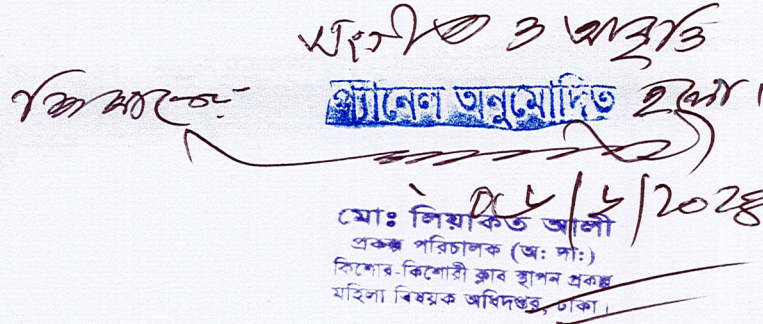 সংগীত ও আবৃত্তি
শিক্ষকের প্যানেল অনুমোদিত হলো।
মোঃ লিয়াকত আলী
প্রকল্প পরিচালক (অঃ দাঃ)
কিশোর-কিশোরী ক্লাব স্থাপন প্রকল্প
মহিলা বিষয়ক অধিদপ্তর, ঢাকা।